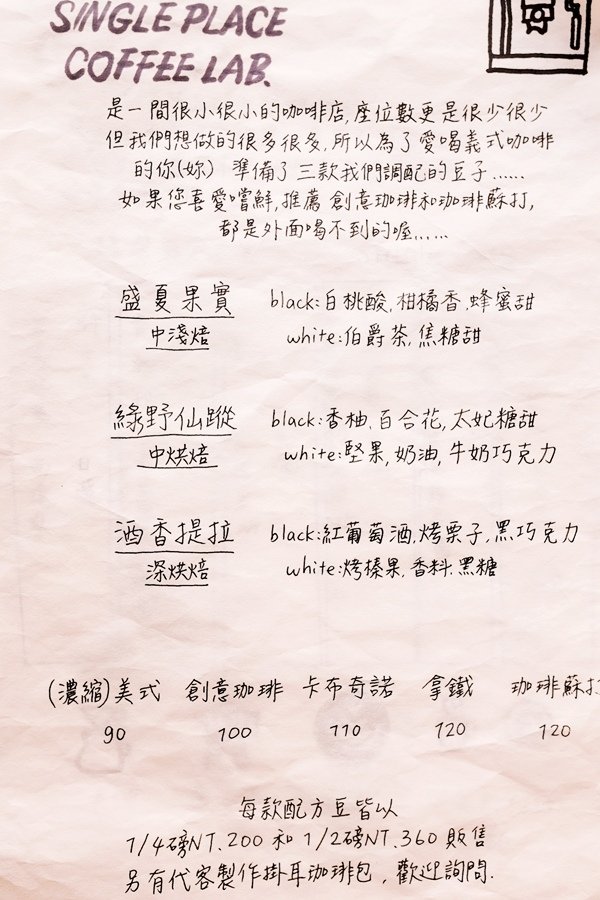 SINGLE PLACE
COFFEE LAB.
是一間很小很小的咖啡店,座位數更是很少很少
但我們想做的很多很多,所以為了愛喝義式咖啡
的你(妳) 準備了三款我們調配的豆子......
如果您喜愛嚐鮮,推薦創意珈琲和珈琲蘇打,
都是外面喝不到的喔......
盛夏果實 black:白桃酸,柑橘香,蜂蜜甜
中淺焙 white:伯爵茶,焦糖甜
綠野仙蹤 black:香柚、百合花,太妃糖甜
中烘焙 white:堅果,奶油,牛奶巧克力
酒香提拉 black:紅葡萄酒,烤栗子,黑巧克力
深烘焙 white:烤榛果,香料.黑糖
(濃縮)美式 創意珈琲 卡布奇諾 拿鐵 珈琲蘇打
90 100 110 120 120
每款配方豆皆以
1/4磅NT.200 和 1/2磅NT.360 販售
另有代客製作掛耳珈琲包,歡迎詢問.